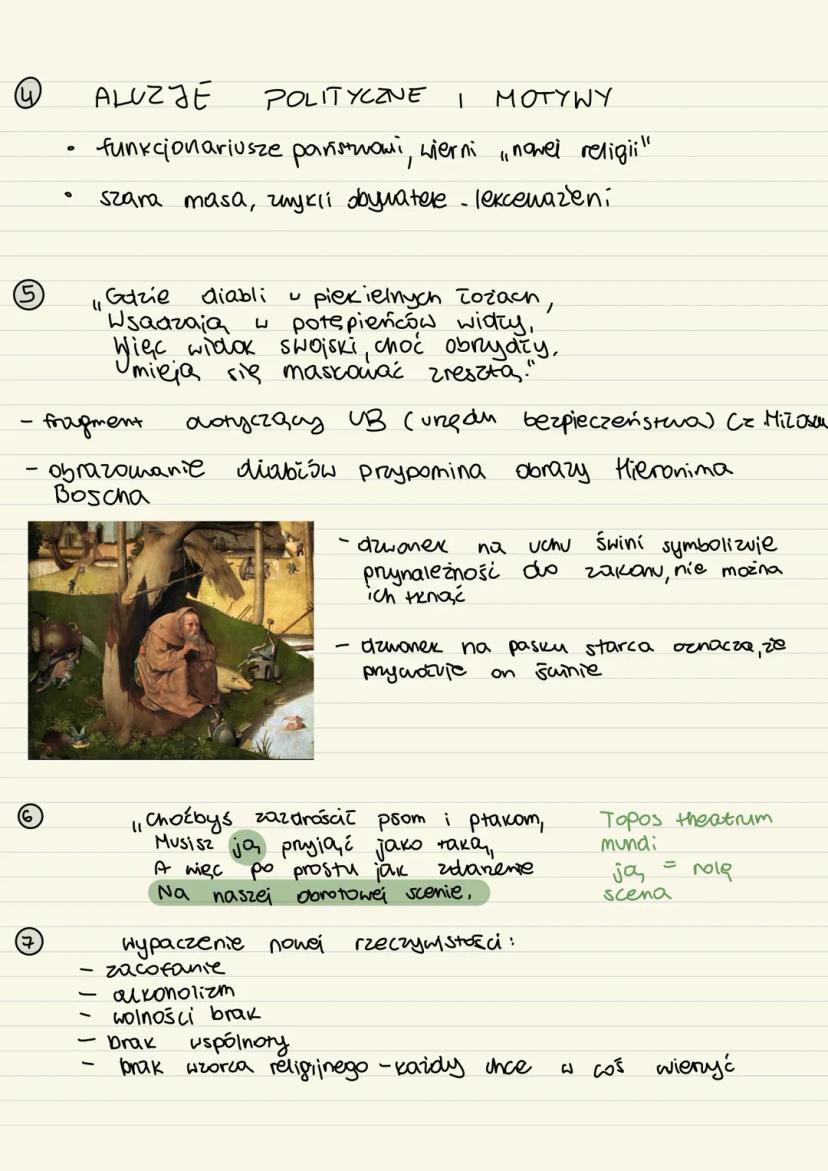 4 ALUZJE POLITYCZNE I MOTYWY
• funkcjonariusze państwowi, wierni „nowej religii"
• szara masa, zwykli obywatele - lekceważeni
5 „Gdzie diabli w piekielnych łożach,
Wsadzają w potępieńców widły,
Więc widok swojski, choć obrzydły.
Umieją się maskować zresztą."
- fragment dotyczący UB (urzędu bezpieczeństwa) Cz Miłosz
- obrazowanie diabłów przypomina obrazy Hieronima
Boscha
- dzwonek na uchu świni symbolizuje
przynależność do zakonu, nie można
ich tknąć
- dzwonek na pasku starca oznacza, że
przywołuje on świnie
6 „Choćbyś zazdrościł psom i ptakom,
Musisz ją przyjąć jako taką,
A więc po prostu jak zdarzenie
Na naszej obrotowej scenie.
Topos theatrum
mundi
ją = rolę
scena
7 wypaczenie nowej rzeczywistości:
- zacofanie
- alkoholizm
- wolności brak
- brak wspólnoty
- brak wzorca religijnego - każdy chce w coś wierzyć